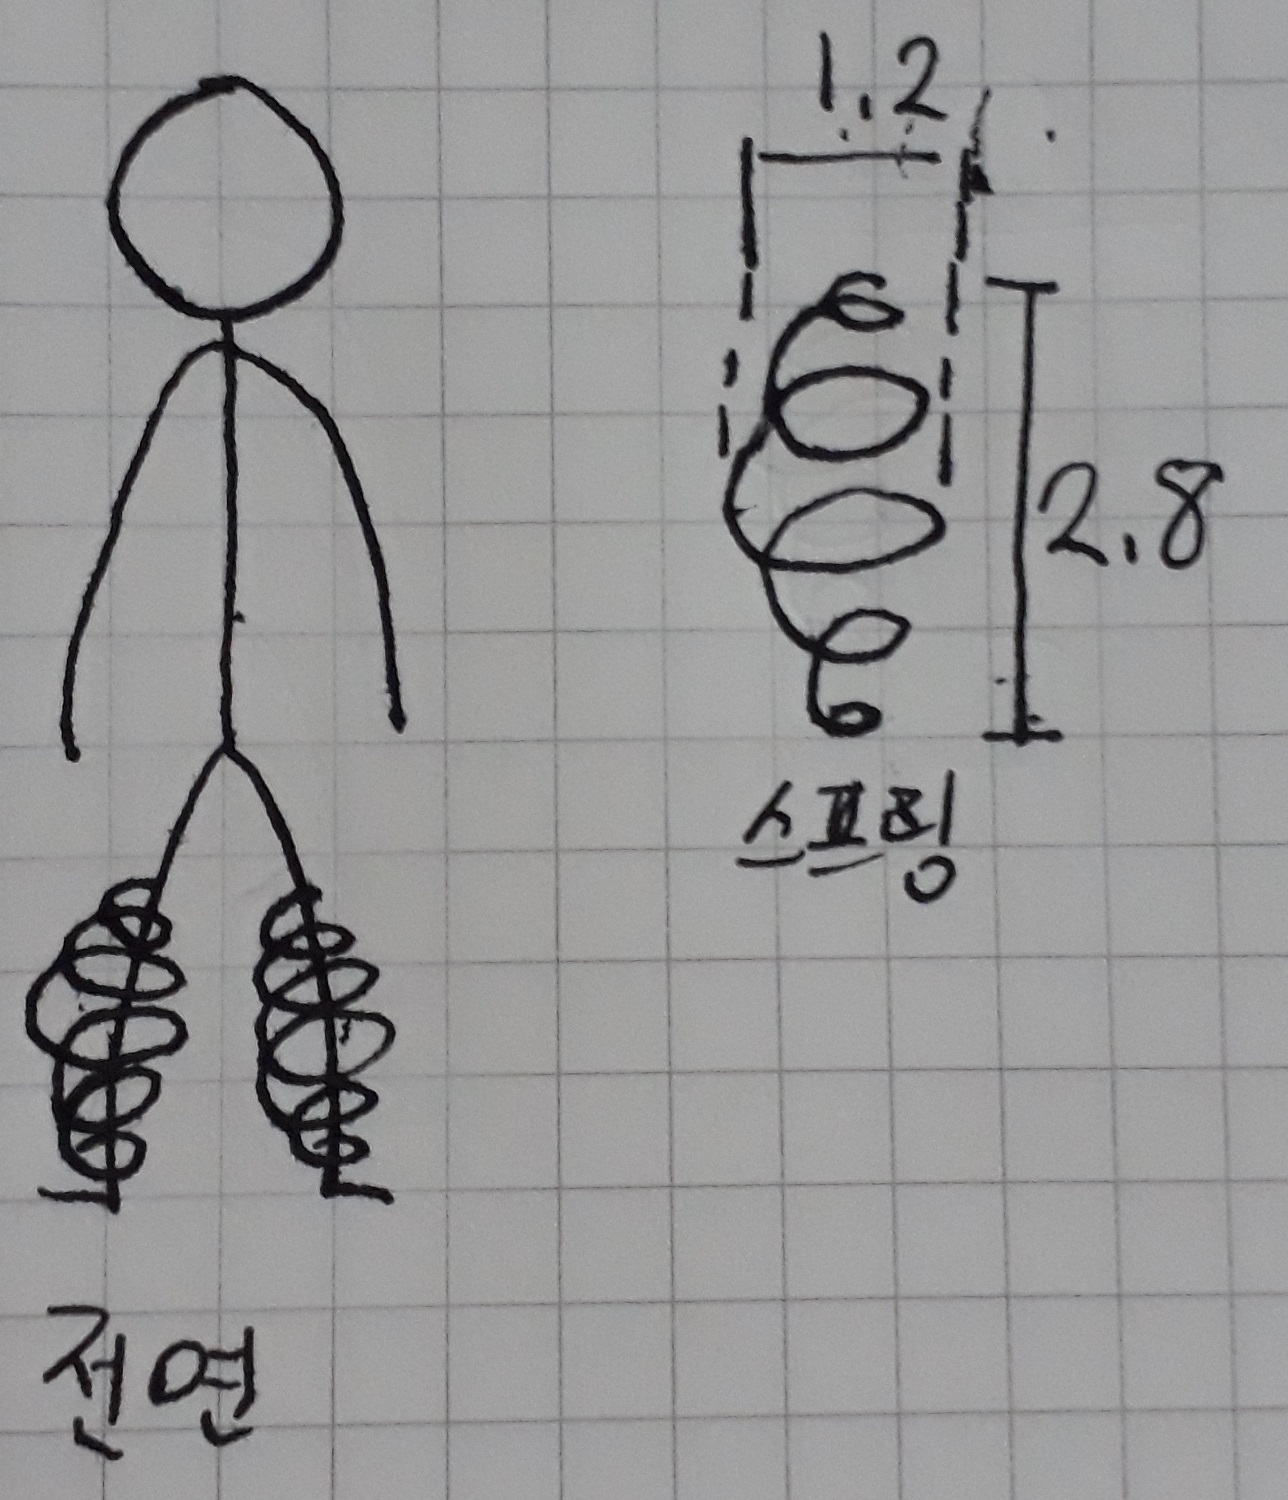 1.2
2.8
스프링
전면